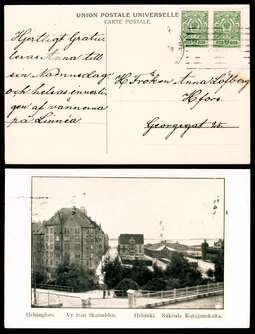 UNION POSTALE UNIVERSELLE
CARTE POSTALE.
Hjertligt Gratu-
leras Anna till
sin Namnsdag
och helsas innerli-
gen af vännerna
på Linnéa
H. Fröken Anna Löfberg
H:fors.
Georgsgat 25
Helsingfors. Vy från Skatudden. Helsinki. Näköala Katajanokalta.